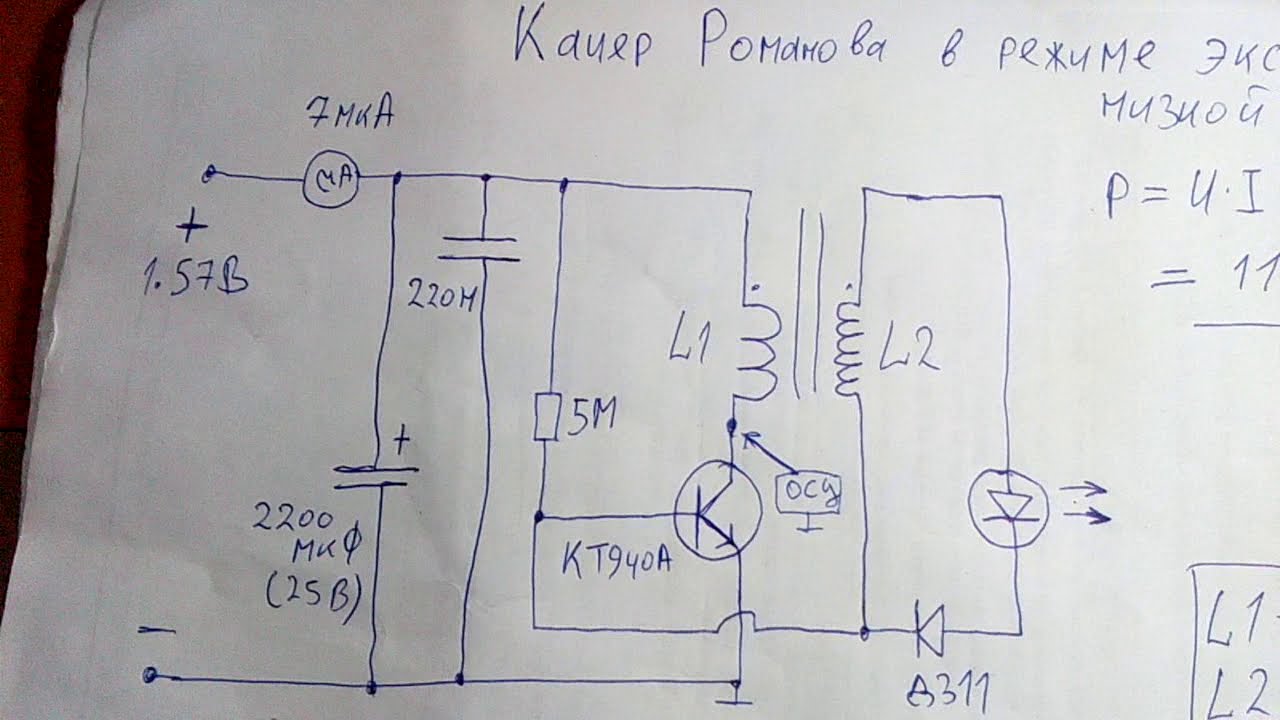 Качер Романова в режиме экс
низкой
7мкА
мА
P = U·I
+
1.57В
= 11
220н
L1
L2
5М
+
осц
2200
мкФ
(25В)
КТ940А
–
L1-
L2
Д311